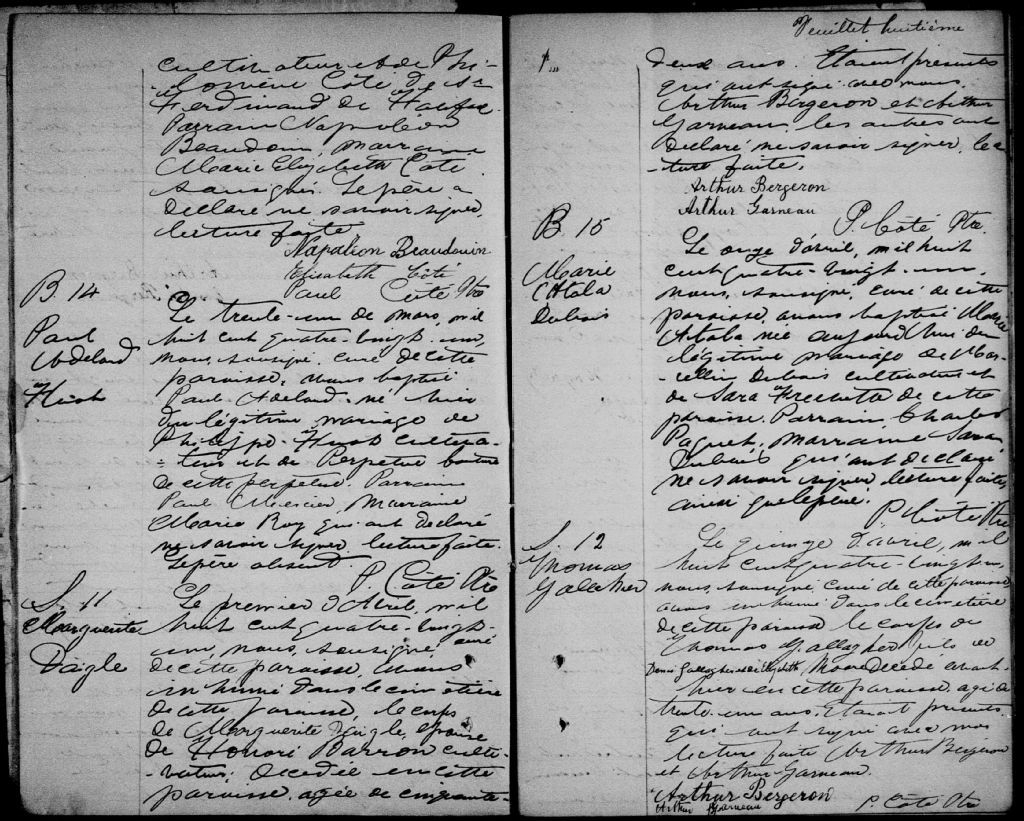 cultivateur et de Phi-
-lomène Côté de St
Ferdinand de Halifax
Parrain Napoléon
Beaudoin, marraine
Marie Elizabeth Côté
soussignés. Le père a
déclaré ne savoir signer,
lecture faite.
Napoléon Beaudouin
Elisabeth Côté
Paul Côté Ptre
B. 14
Paul
Adelard
Le trente-un de mars, mil
huit cent quatre-vingt-un,
nous, soussigné, curé de cette
paroisse, avons baptisé
Paul Adelard né hier
du légitime mariage de
Philippe cultiva-
-teur et de Perpetue
de cette Parrain
Paul Mercier, marraine
Marie Roy qui ont déclaré
ne savoir signer, lecture faite.
Le père absent.
P. Côté Ptre
S. 11
Marguerite
Daigle
Le premier d'Avril, mil
huit cent quatre-vingt-
un, nous, soussigné, curé
de cette paroisse, avons
inhumé dans le cimetière
de cette paroisse, le corps
de Marguerite Daigle, épouse
de Honoré Barron culti-
-vateur; décédée en cette
paroisse, agée de cinquante-
Feuillet huitième
deux ans. Etaient présents
qui ont signé avec nous
Arthur Bergeron et Arthur
Garneau, les autres ont
déclaré ne savoir signer, lec-
-ture faite.
Arthur Bergeron
Arthur Garneau
P. Côté Ptre.
B 15
Marie
Atala
Dubois
Le onze d'avril, mil huit
cent quatre-vingt-un,
nous, soussigné, curé de cette
paroisse, avons baptisé Marie
Atala née aujourd'hui du
légitime mariage de Mar-
-cellin Dubois cultivateur et
de Sara Frechette de cette
paroisse. Parrain, Charles
Paquet, marraine Sara
Dubois qui ont déclaré
ne savoir signer, lecture faite,
ainsi que le père.
P. Côté Ptre
S. 12
Thomas
Gallagher
Le quinze d'avril, mil
huit cent quatre-vingt-un
nous, soussigné, curé de cette paroisse
avons inhumé dans le cimetière
de cette paroisse le corps de
Thomas Gallagher fils de
Denis Gallagher et de Elizabeth Moore décédé avant-
hier en cette paroisse, agé de
trente-un ans. Etaient présents
qui ont signé avec nous
lecture faite Arthur Bergeron
et Arthur Garneau.
Arthur Bergeron
Arthur Garneau
P. Côté Ptre